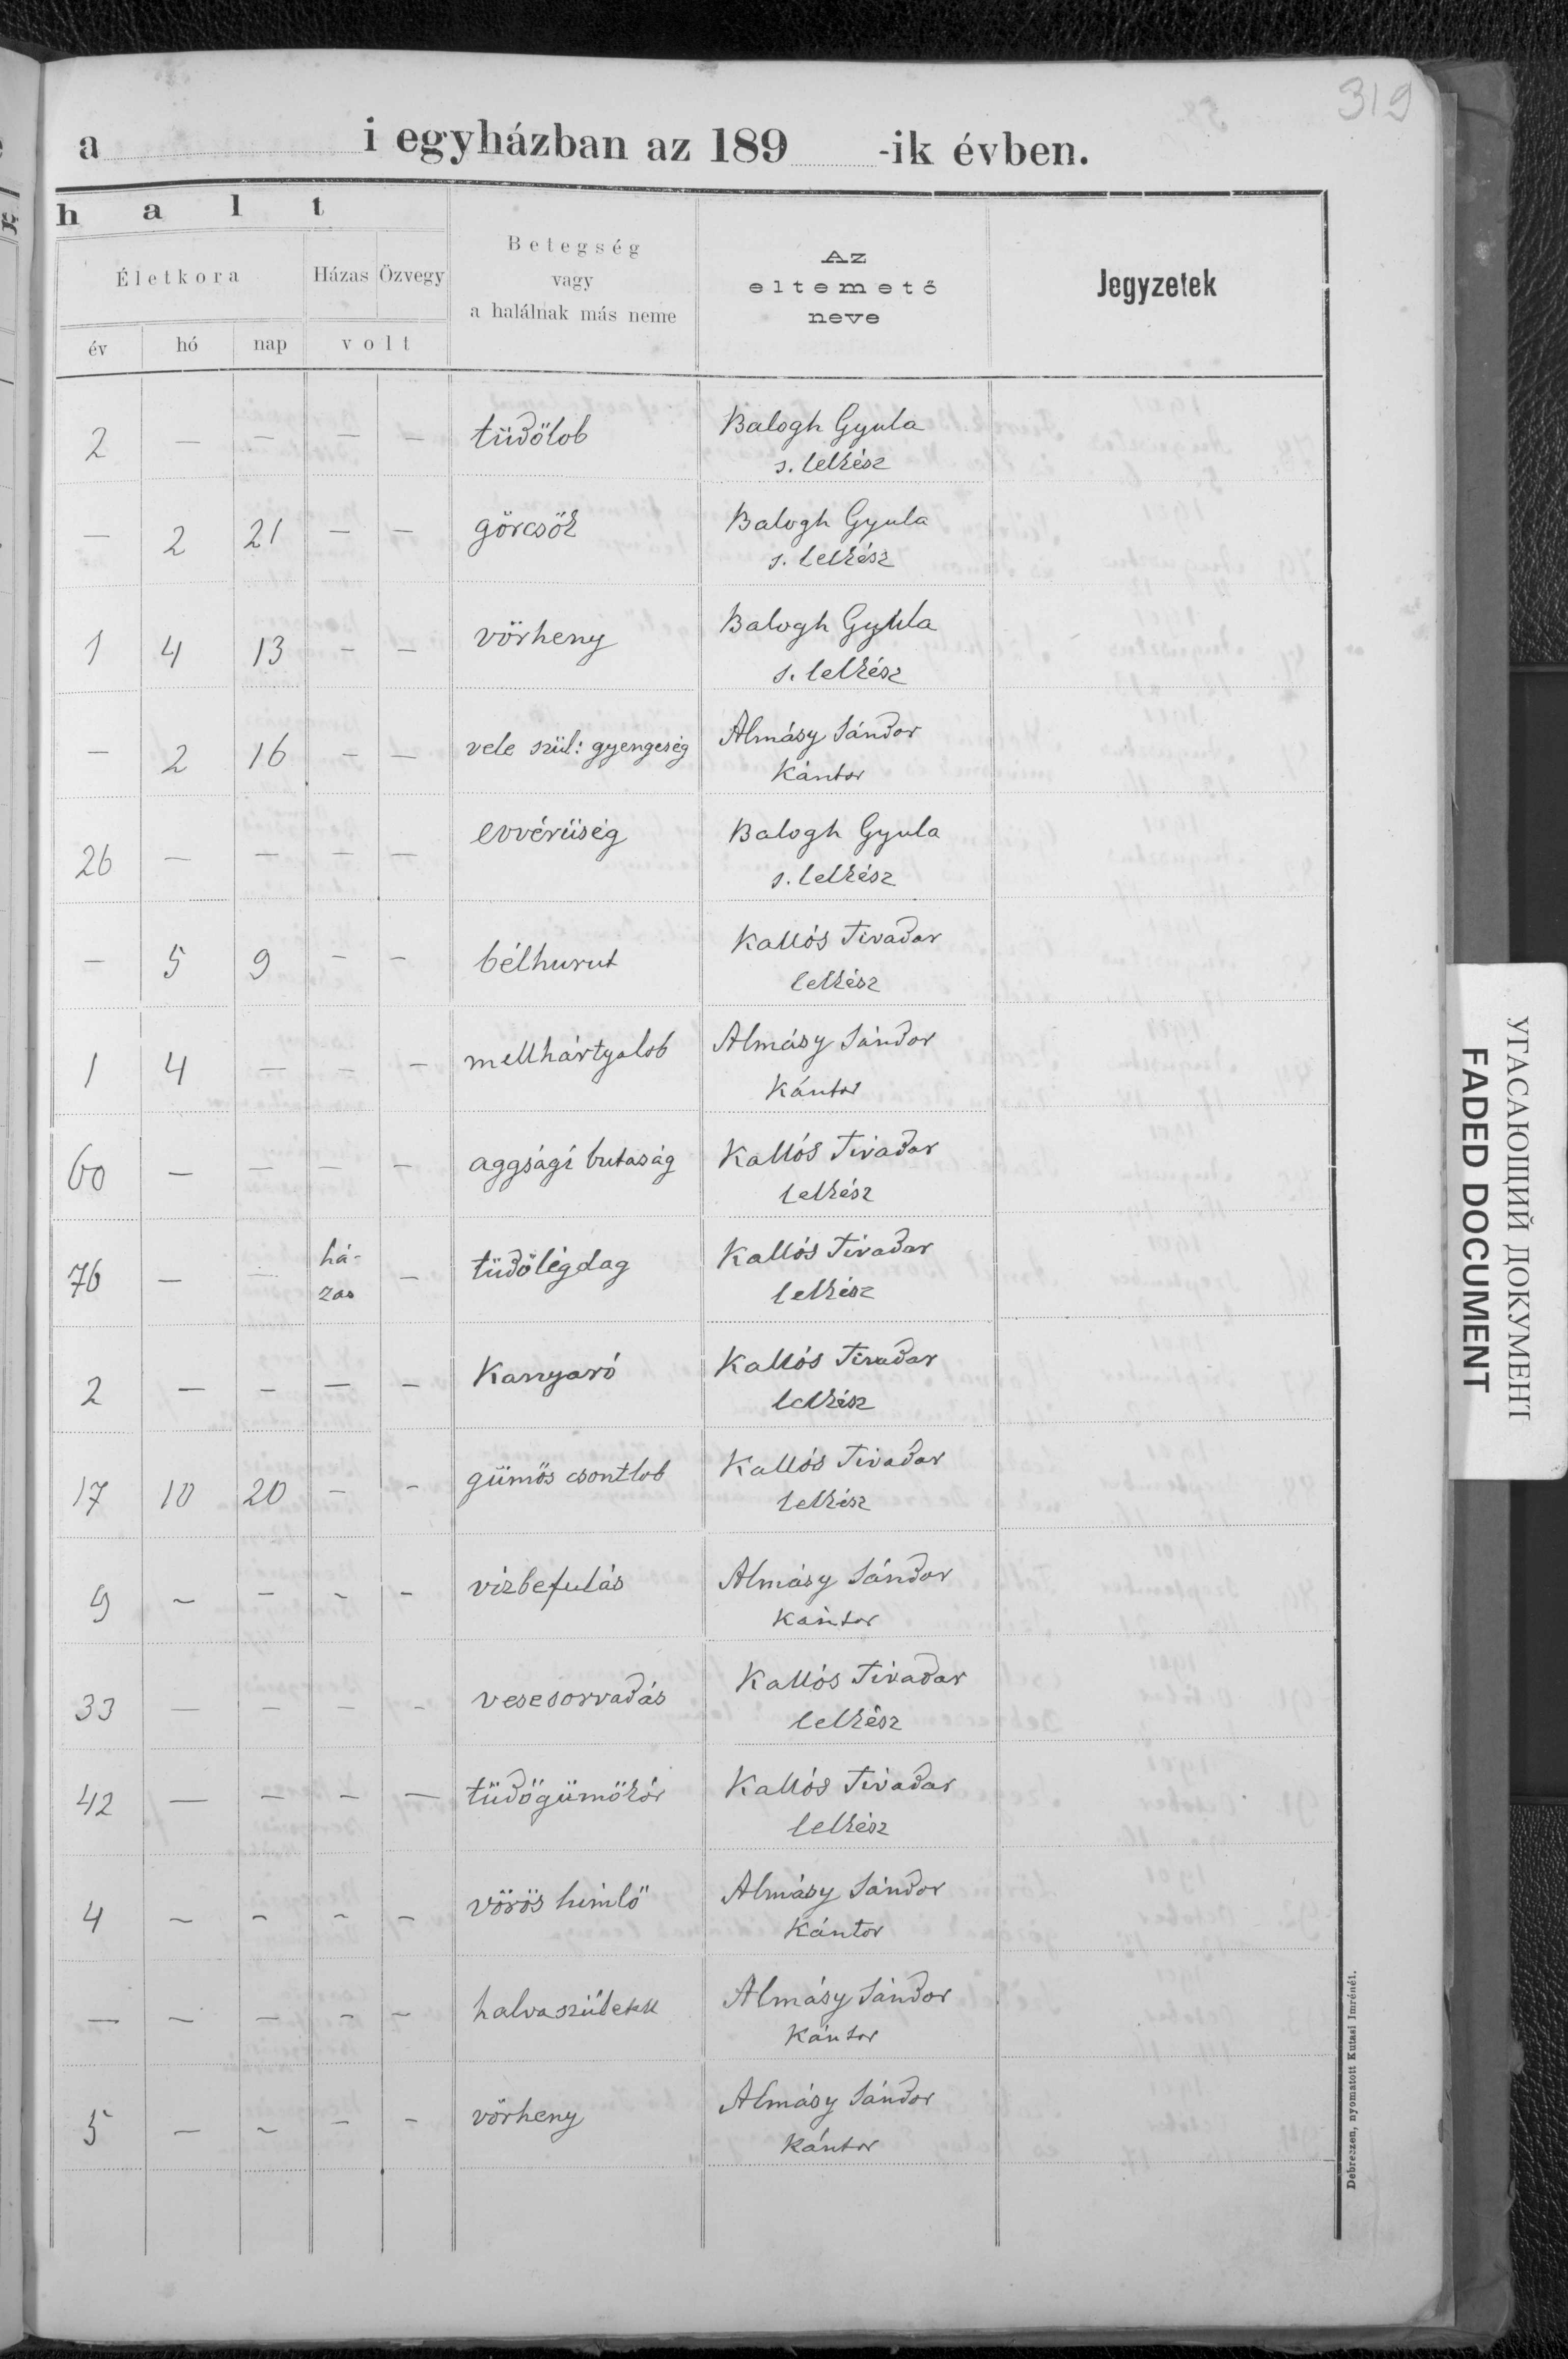 319
a i egyházban az 189 -ik évben.
h a l t
Életkora
Házas
Özvegy
Betegség
vagy
a halálnak más neme
Az
eltemető
neve
Jegyzetek
év hó nap volt
2 — — — — tüdőlob Balogh Gyula
s. lelkész
— 2 21 — — görcsök Balogh Gyula
s. lelkész
1 4 13 - — vörheny Balogh Gyula
s. lelkész
— 2 16 — — vele szül: gyengeség Almásy Sándor
Kántor
26 — — — — evvérüség Balogh Gyula
s. lelkész
— 5 9 - - bélhurut Kallós Tivadar
lelkész
1 4 — - - mellhártyalob Almásy Sándor
Kántor
60 — — — - aggsági butaság Kallós Tivadar
lelkész
76 — — há-
zas — tüdőlégdag Kallós Tivadar
lelkész
2 — - — - Kanyaró Kallós Tivadar
lelkész
17 10 20 - - gümős csontlob Kallós Tivadar
lelkész
9 ~ - - - vizbefulás Almásy Sándor
Kántor
33 — - - - vesesorvadás Kallós Tivadar
lelkész
42 — — - — tüdőgümőkór Kallós Tivadar
lelkész
4 ~ ~ ~ ~ vörös himlő Almásy Sándor
Kántor
— ~ — - ~ halvaszületett Almásy Sándor
Kántor
5 — ~ - - vörheny Almásy Sándor
Kántor
Debreczen, nyomatott Kutasi Imrénél.
УГАСАЮЩИЙ ДОКУМЕНТ
FADED DOCUMENT